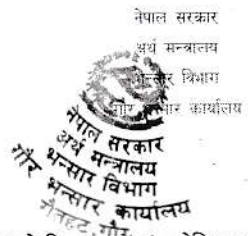 नेपाल सरकार
अर्थ मन्त्रालय
भन्सार विभाग
गौर भन्सार कार्यालय
नेपाल सरकार
अर्थ मन्त्रालय
भन्सार विभाग
गौर भन्सार कार्यालय
रौतहट, गौर